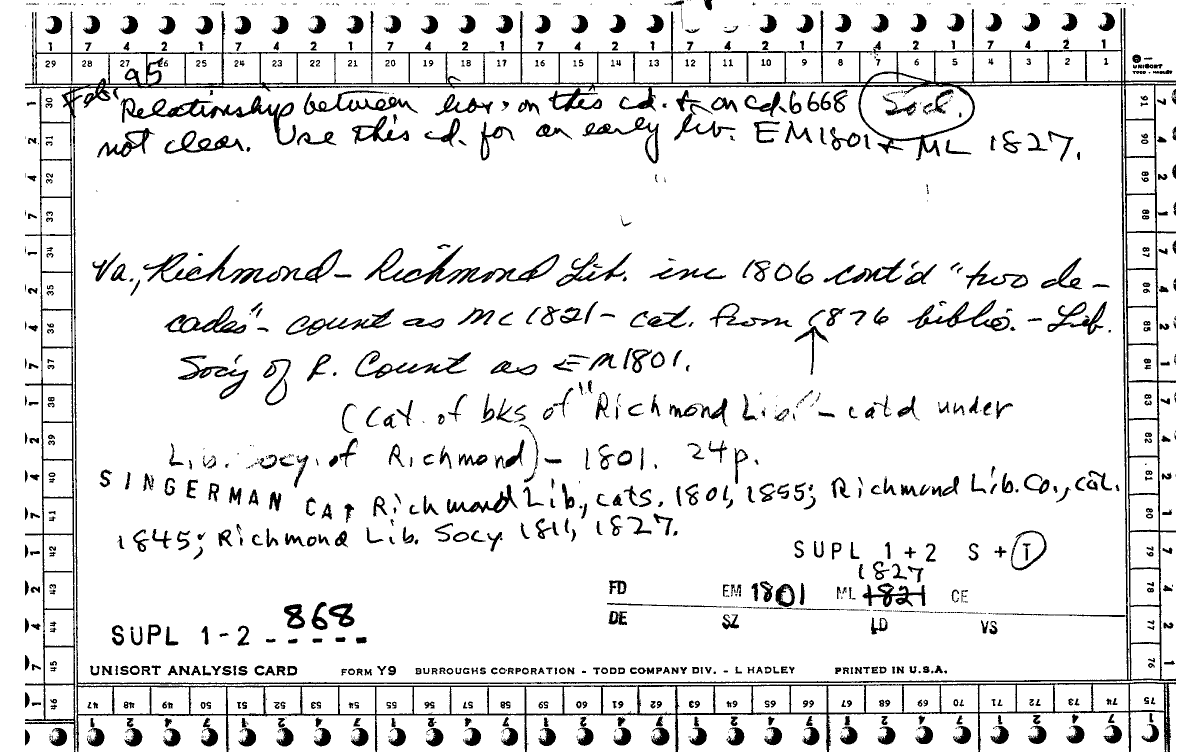 1 7 4 2 1 7 4 2 1 7 4 2 1 7 4 2 1 7 4 2 1 7 4 2 1 7 4 2 1
29 28 27 26 25 24 23 22 21 20 19 18 17 16 15 14 13 12 11 10 9 8 7 6 5 4 3 2 1
UNISORT
TODD - HADLEY
Feb. 95
Relationship between libs. on this cd. & on cd. 6668 Socl.
not clear. Use this cd. for an early lib. EM1801 & ML 1827.
Va., Richmond - Richmond Lib. inc 1806 cont'd "two de-
cades" - count as ML 1821 - cat. from 1876 biblio. - Lib.
Soc'y of R. Count as EM1801.
(Cat. of bks of "Richmond Lib." - catd under
Lib. Socy. of Richmond) - 1801. 24p.
SINGERMAN CAT Richmond Lib., cats. 1801, 1855; Richmond Lib. Co., cat.
1845; Richmond Lib. Socy 1811, 1827.
SUPL 1 + 2 S + T
1827
FD EM 1801 ML 1821 CE
DE SZ LD VS
SUPL 1-2 - 868
UNISORT ANALYSIS CARD FORM Y9 BURROUGHS CORPORATION - TODD COMPANY DIV. - L HADLEY PRINTED IN U.S.A.
30 31 32 33 34 35 36 37 38 39 40 41 42 43 44 45 46
47 48 49 50 51 52 53 54 55 56 57 58 59 60 61 62 63 64 65 66 67 68 69 70 71 72 73 74 75
76 77 78 79 80 81 82 83 84 85 86 87 88 89 90 91